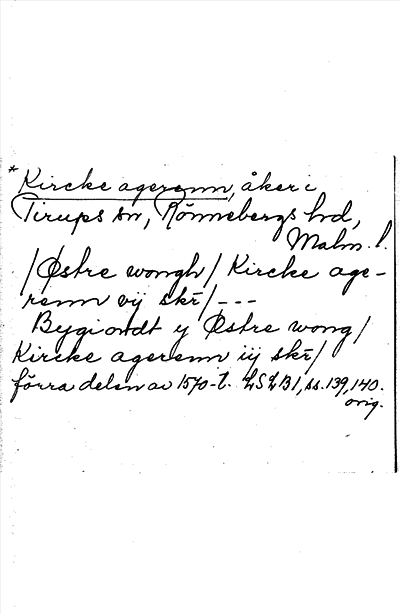 *Kircke agerenn, åker i
Tirups sn, Rönnebergs hd,
Malm. l.
/Østre wongh/ Kircke age-
renn vij skr̄/---
Bygi ondt y Østre wong/
Kircke agerenn iij skr̄/
förra delen av 1570-t. LSLB1, ss. 139, 140.
orig.